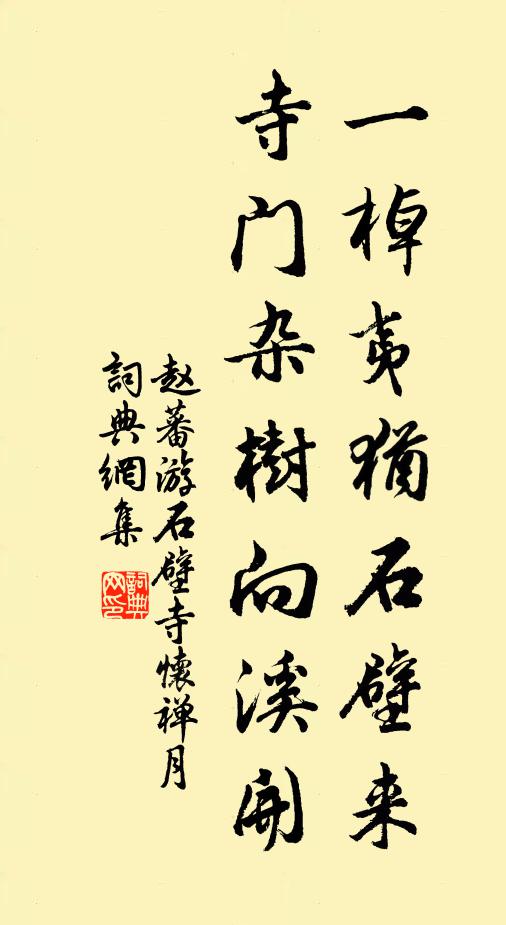 一棹夷犹石壁来
寺门杂樹向溪開
赵蕃游石壁寺懷禅月
詞典網集
詞典网印